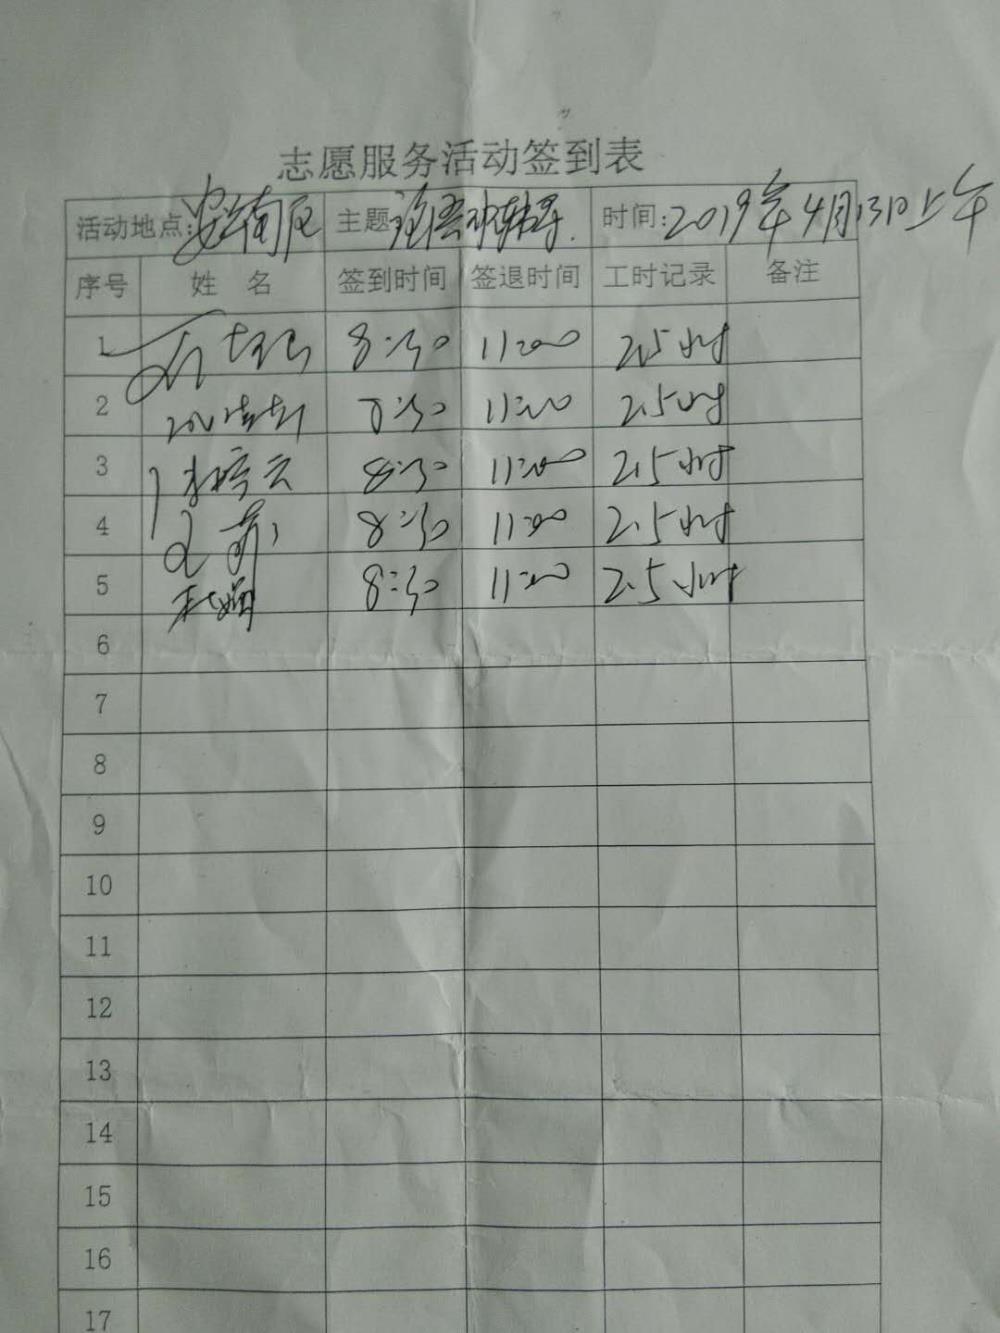 志愿服务活动签到表
活动地点: 主题 时间:2019年4月13日上午
序号 姓 名 签到时间 签退时间 工时记录 备注
1 8:30 11:00 2.5小时
2 8:30 11:00 2.5小时
3 8:30 11:00 2.5小时
4 8:30 11:00 2.5小时
5 杜娟 8:30 11:00 2.5小时
6
7
8
9
10
11
12
13
14
15
16
17